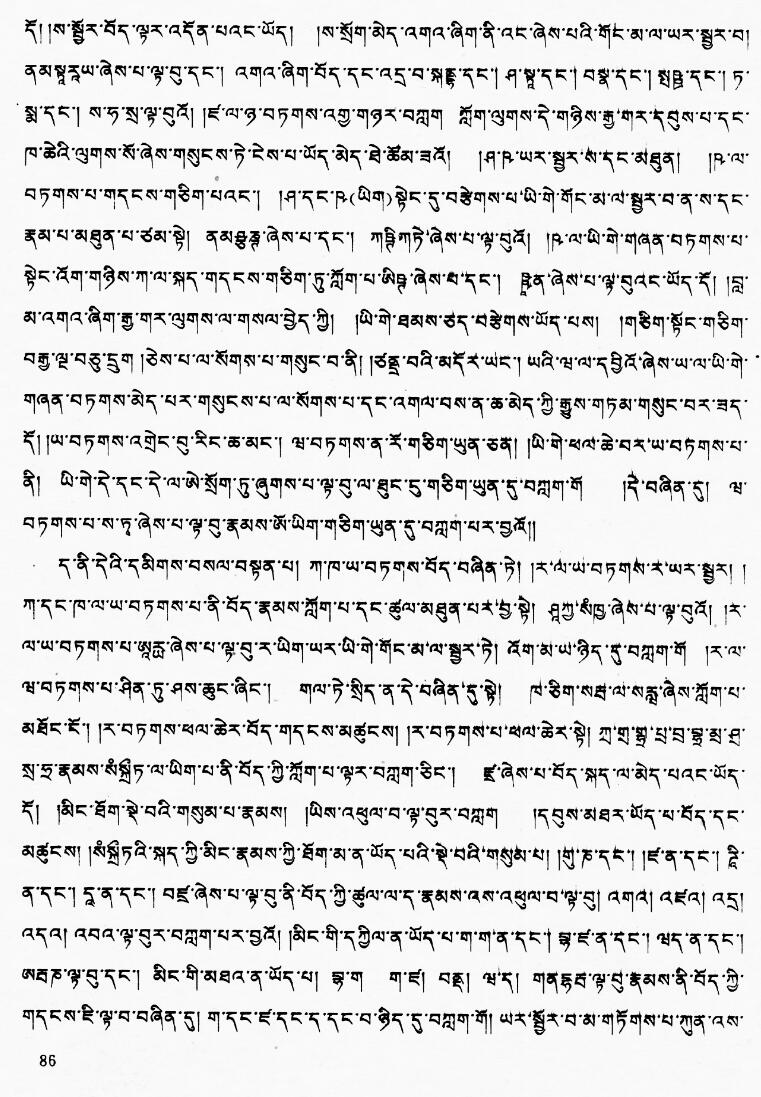 དོ། །ས་སྦྱོར་བོད་ལྟར་འདོན་པའང་ཡོད། །ས་སྲོག་མེད་འགའ་ཞིག་ནི་འང་ཞེས་པའི་གོང་མ་ལ་ཡར་སྦྱར་བ།
ནམསྟཱརཱཡ་ཞེས་པ་ལྟ་བུ་དང་། འགའ་ཞིག་བོད་དང་འདྲ་བ་སྐནྡྷ་དང་། ཤ་སྟཱ་དང་། བསྟ་དང་། སྤཥྚ་དང་། ཏ་
སྨཱ་དང་། ས་ཧ་སྲ་ལྟ་བུའོ། །ཛ་ལ་ཉ་བཏགས་འགྱ་གཉར་བཀླག ཀློག་ལུགས་དེ་གཉིས་རྒྱ་གར་དབུས་པ་དང་
ཁ་ཆེའི་ལུགས་སོ་ཞེས་གསུངས་ཏེ་ངེས་པ་ཡོད་མེད་ཐེ་ཚོམ་ཟའོ། །ཤ་ཥ་ཡར་སྦྱར་ས་དང་མཐུན། །ཥ་ལ་
བཏགས་པ་གདངས་གཅིག་པའང་། །ཤ་དང་ཥ(ཡིག)སྟེང་དུ་བརྩེགས་པ་ཡི་གེ་གོང་མ་ལ་སྦྱར་བ་ན་ས་དང་
རྣམ་པ་མཐུན་པ་ཙམ་སྟེ། ཞེས་པ་དང་། ཞེས་པ་ལྟ་བུའོ། །ཥ་ལ་ཡི་གེ་གཞན་བཏགས་པ་
སྟེང་འོག་གཉིས་ཀ་ལ་སྐད་གདངས་གཅིག་ཏུ་ཀློག་པ་ཞེས་པ་དང་། ཞེས་པ་ལྟ་བུའང་ཡོད་དོ། །བླ་
མ་འགའ་ཞིག་རྒྱ་གར་ལུགས་ལ་གསལ་བྱེད་ཀྱི། །ཡི་གེ་ཐམས་ཅད་བརྩེགས་ཡོད་པས། །གཅིག་སྟོང་གཅིག་
བརྒྱ་ལྔ་བཅུ་དྲུག །ཅེས་པ་ལ་སོགས་པ་གསུང་བ་ནི། །ཙནྡྲ་བའི་མདོར་ཡང་། ཡའི་ཝ་ལ་དབྱིའོ་ཞེས་ཡ་ལ་ཡི་གེ་
གཞན་བཏགས་མེད་པར་གསུངས་པ་ལ་སོགས་པ་དང་འགལ་བས་ན་ཆ་མེད་ཀྱི་རྒྱུས་གཏམ་གསུང་བར་ཟད་
དོ། །ཡ་བཏགས་འགྲེང་བུ་རིང་ཆ་མང་། ཝ་བཏགས་ན་རོ་གཅིག་ཡུན་ཅན། །ཡི་གེ་ཕལ་ཆེ་བར་ཡ་བཏགས་པ་
ནི། ཡི་གེ་དེ་དང་དེ་ལ་ཨེ་སྲོག་ཏུ་ཞུགས་པ་ལྟ་བུ་ལ་ཐུང་དུ་གཅིག་ཡུན་དུ་བཀླག་གོ །དེ་བཞིན་དུ། ཝ་
བཏགས་པ་ས་ཏྭ་ཞེས་པ་ལྟ་བུ་རྣམས་ཨོ་ཡིག་གཅིག་ཡུན་དུ་བཀླག་པར་བྱའོ།།
ད་ནི་དེའི་དམིགས་བསལ་བསྟན་པ། ཀ་ཁ་ཡ་བཏགས་བོད་བཞིན་ཏེ། །ར་ལ་ཡ་བཏགས་ར་ཡར་སྦྱར། །
ཀ་དང་ཁ་ལ་ཡ་བཏགས་པ་ནི་བོད་རྣམས་ཀློག་པ་དང་ཚུལ་མཐུན་པར་བྱ་སྟེ། ཤཱཀྱ་སཾཁྱ་ཞེས་པ་ལྟ་བུའོ། །ར་
ལ་ཡ་བཏགས་པ་ཨཱརྱ་ཞེས་པ་ལྟ་བུ་ར་ཡིག་ཡར་ཡི་གེ་གོང་མ་ལ་སྦྱར་ཏེ། འོག་མ་ཡ་ཉིད་དུ་བཀླག་གོ །ར་ལ་
ཝ་བཏགས་པ་ཤིན་ཏུ་ཤས་ཆུང་ཞིང་། གལ་ཏེ་སྲིད་ན་དེ་བཞིན་དུ་སྟེ། ཁ་ཅིག་སརྦ་ལ་སརྦྦ་ཞེས་ཀློག་པ་
མཐོང་ངོ་། །ར་བཏགས་ཕལ་ཆེར་བོད་གདངས་མཚུངས། །ར་བཏགས་པ་ཕལ་ཆེར་སྟེ། ཀྲ་གྲ་གྷྲ་པྲ་བྲ་བྷྲ་མྲ་ཤྲ་
སྲ་ཧྲ་རྣམས་སཾསྐྲྀཏ་ལ་ཡིག་པ་ནི་བོད་ཀྱི་ཀློག་པ་ལྟར་བཀླག་ཅིང་། ཛྲ་ཞེས་པ་བོད་སྐད་ལ་མེད་པའང་ཡོད་
དོ། །མིང་ཐོག་སྡེ་བའི་གསུམ་པ་རྣམས། །ཡིས་འཕུལ་བ་ལྟ་བུར་བཀླག །དབུས་མཐར་ཡོད་པ་བོད་དང་
མཚུངས། །སཾསྐྲྀཏའི་སྐད་ཀྱི་མིང་རྣམས་ཀྱི་ཐོག་མ་ན་ཡོད་པའི་སྡེ་བའི་གསུམ་པ། །གུ་ཎ་དང་། །ཛ་ན་དང་། 
ན་དང་། དཱ་ན་དང་། བཛྲ་ཞེས་པ་ལྟ་བུ་ནི་བོད་ཀྱི་ཚུལ་ལ་ད་རྣམས་འས་འཕུལ་བ་ལྟ་བུ། འགའ། འཛའ། འདྲ།
འདའ། འབའ་ལྟ་བུར་བཀླག་པར་བྱའོ། །མིང་གི་དཀྱིལ་ན་ཡོད་པ་ག་ག་ན་དང་། བྷ་ཛ་ན་དང་། ཝད་ན་དང་།
ལྟ་བུ་དང་། མིང་གི་མཐའ་ན་ཡོད་པ། བྷ་ག ག་ཛ། ཝ་ད། ལྟ་བུ་རྣམས་ནི་བོད་ཀྱི་
གདངས་ཇི་ལྟ་བ་བཞིན་དུ། ག་དང་ཛ་དང་ད་དང་བ་ཉིད་དུ་བཀླག་གོ། ཡར་སྦྱོར་བ་མ་གཏོགས་པ་ཀུན་འས་
86